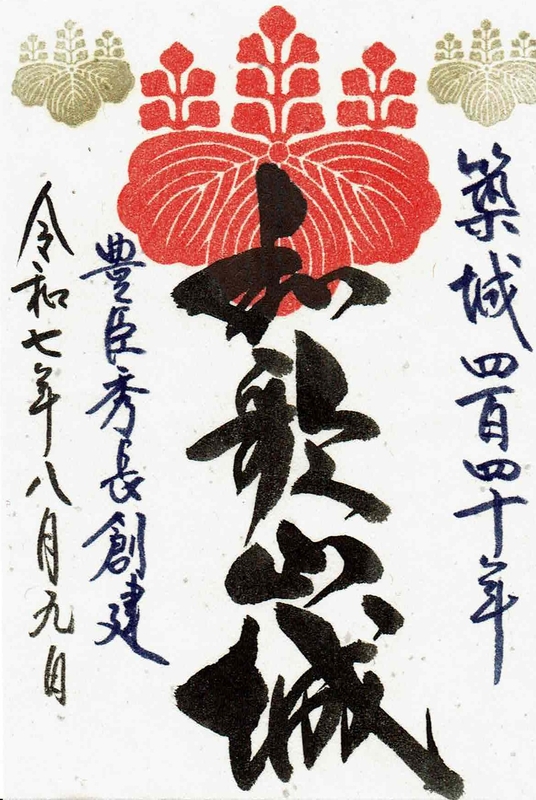 築城四百四十年
和歌山城
豊臣秀長創建
令和七年八月九日